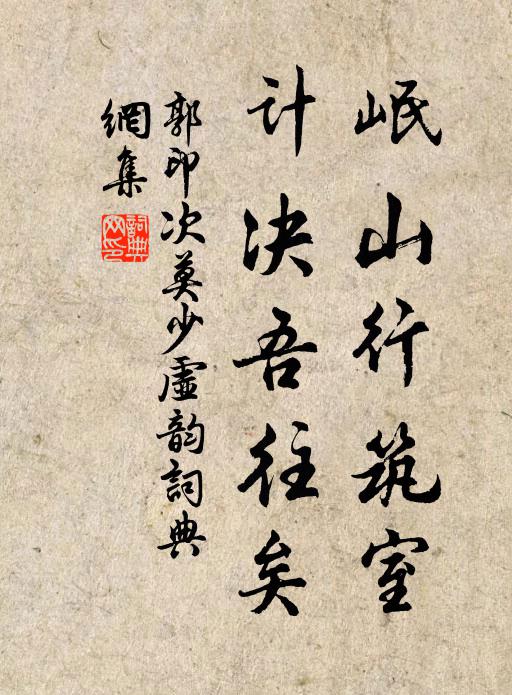 岷山行筑室
计决吾往矣
郭印次莫少虛韵詞典
網集
詞典網印